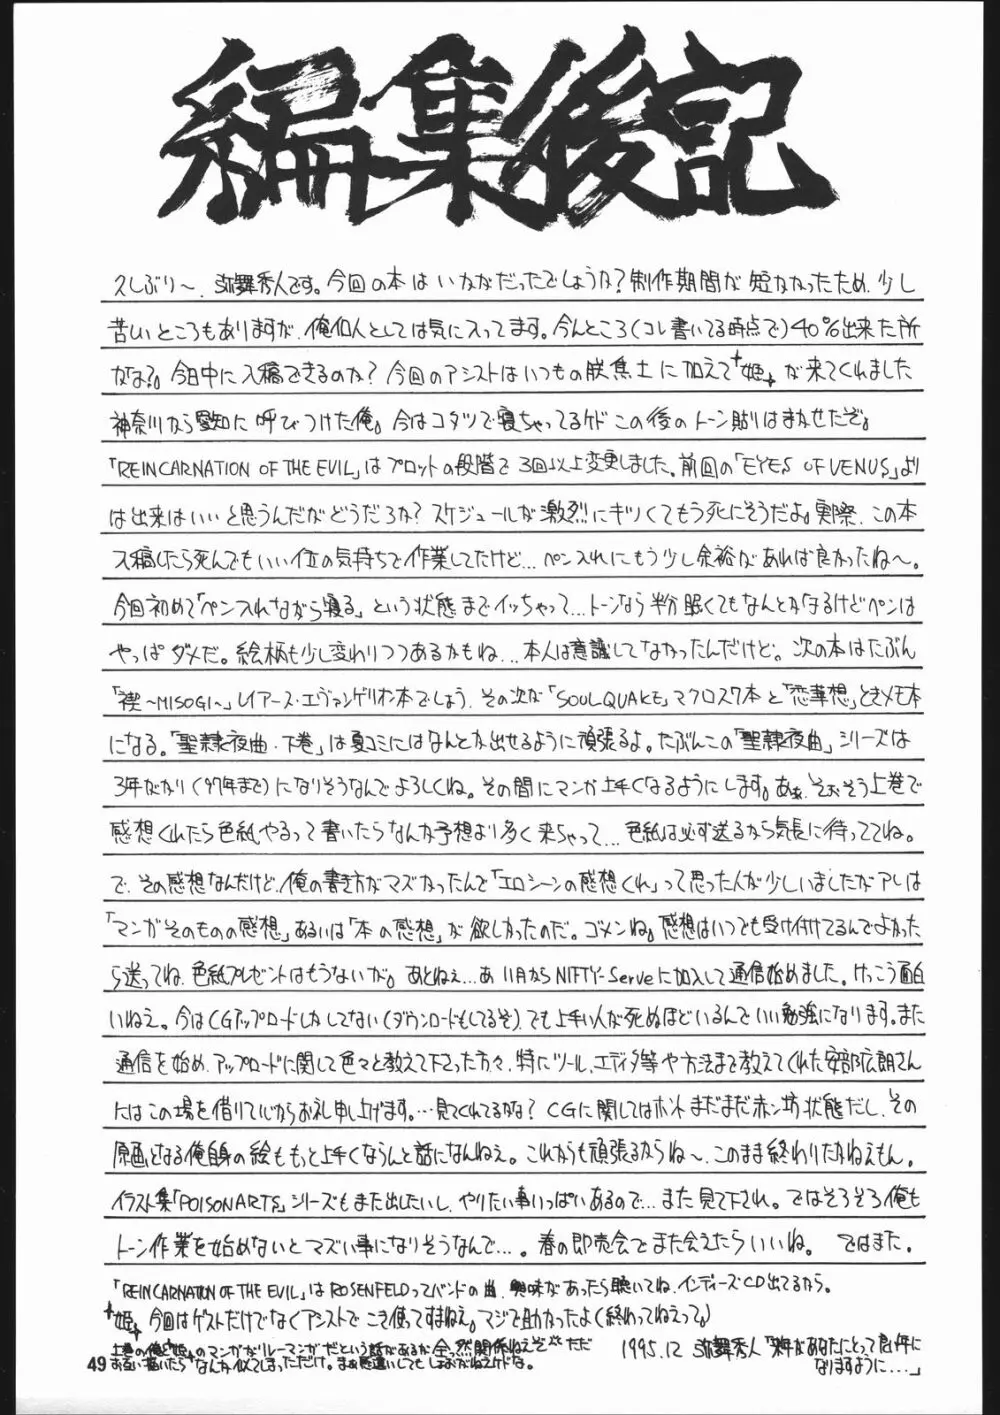 編集後記
久しぶり〜、弥舞秀人です。今回の本はいかがだったでしょうか?制作期間が短かかったため、少し
苦しいところもありますが、俺個人としては気に入ってます。今んところ(コレ書いてる時点で)40%出来た所
かな?。今日中に入稿できるのか?今回のアシストはいつもの朕焦土に加えて姫が来てくれました
神奈川から愛知に呼びつけた俺。今はコタツで寝ちゃってるケドこの後のトーン貼りはまかせたぞ。
「REINCARNATION OF THE EVIL」はプロットの段階で3回以上変更しました。前回の「EYES OF VENUS」より
は出来はいいと思うんだがどうだろか?スケジュールが激烈にキツくてもう死にそうだよ。実際、この本
入稿したら死んでもいい位の気持ちで作業してたけど…ペン入れにもう少し余裕があれば良かったね〜。
今回初めて「ペン入れながら寝る」という状態までイッちゃって…トーンなら半分眠くてもなんとかなるけどペンは
やっぱダメだ。絵柄も少し変わりつつあるかもね…本人は意識してなかったんだけど。次の本はたぶん
「禊〜MISOGI〜」レイアース・エヴァンゲリオン本でしょう、その次が「SOUL QUAKE」マクロス7本と「恋華想」ときメモ本
になる。「聖隷夜曲・下巻」は夏コミにはなんとか出せるように頑張るよ。たぶんこの「聖隷夜曲」シリーズは
3年がかり(97年まで)になりそうなんでよろしくね。その間にマンガ上手くなるようにします。あぁ、そおそう上巻で
感想くれたら色紙やるって書いたらなんか予想より多く来ちゃって…色紙は必ず送るから気長に待っててね。
で、その感想なんだけど、俺の書き方がマズかったんで「エロシーンの感想くれ」って思った人が少しいましたがアレは
「マンガそのものの感想」あるいは「本の感想」が欲しかったのだ。ゴメンね。感想はいつでも受け付けてるんでよかった
ら送ってね、色紙プレゼントはもうないが。あとねぇ…あ、11月からNIFTY-Serveに加入して通信始めました。けっこう面白
いねえ。今はCGアップロードしかしてない(ダウンロードもしてるぞ)、でも上手い人が死ぬほどいるんでいい勉強になります。また
通信を始め、アップロードに関して色々と教えて下さった方々、特にツール、エディタ等や方法まで教えてくれた安部広朗さん
にはこの場を借りて心からお礼申し上げます。…見てくれてるかな?CGに関してはホントまだまだ赤ン坊状態だし、その
原画となる俺自身の絵ももっと上手くならんと話になんねえ。これからも頑張るからね〜、このまま終わりたかねえもん。
イラスト集「POISON ARTS」シリーズもまた出したいし、やりたい事いっぱいあるので…また見て下され。ではそろそろ俺も
トーン作業を始めないとマズい事になりそうなんで…。春の即売会でまた会えたらいいね。ではまた。
「REINCARNATION OF THE EVIL」はROSENFELDってバンドの曲、興味があったら聴いてね、インディーズCD出てるから。
姫、今回はゲストだけでなくアシストでこき使ってすまねえ。マジで助かったよ(終わってねえって)
上巻の俺と姫のマンガがリレーマンガだという話があるが全っ然関係ねえぞ ただ
1995.12 弥舞秀人「来年があなたにとって良い年に
なりますように…」
なんか似てしまっただけ。まぁ勘違いしてもしょおがねえけどな。
49